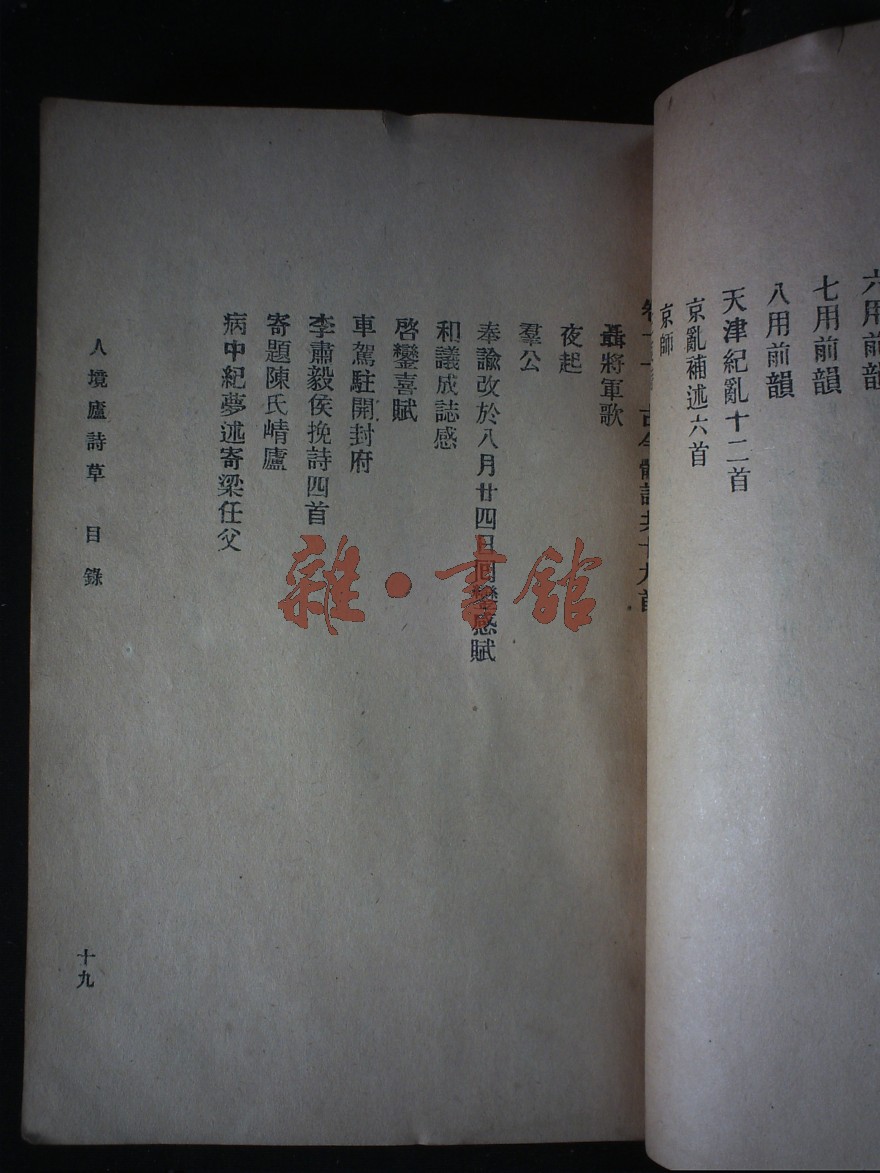 六用前韻
七用前韻
八用前韻
天津紀亂十二首
京亂補述六首
京師
聶將軍歌
夜起
羣公
奉諭改於八月廿四日回鑾感賦
和議成誌感
啓鑾喜賦
車駕駐開封府
李肅毅侯挽詩四首
寄題陳氏崝廬
病中紀夢述寄梁任父
人境廬詩草 目錄
十九
雜·書館